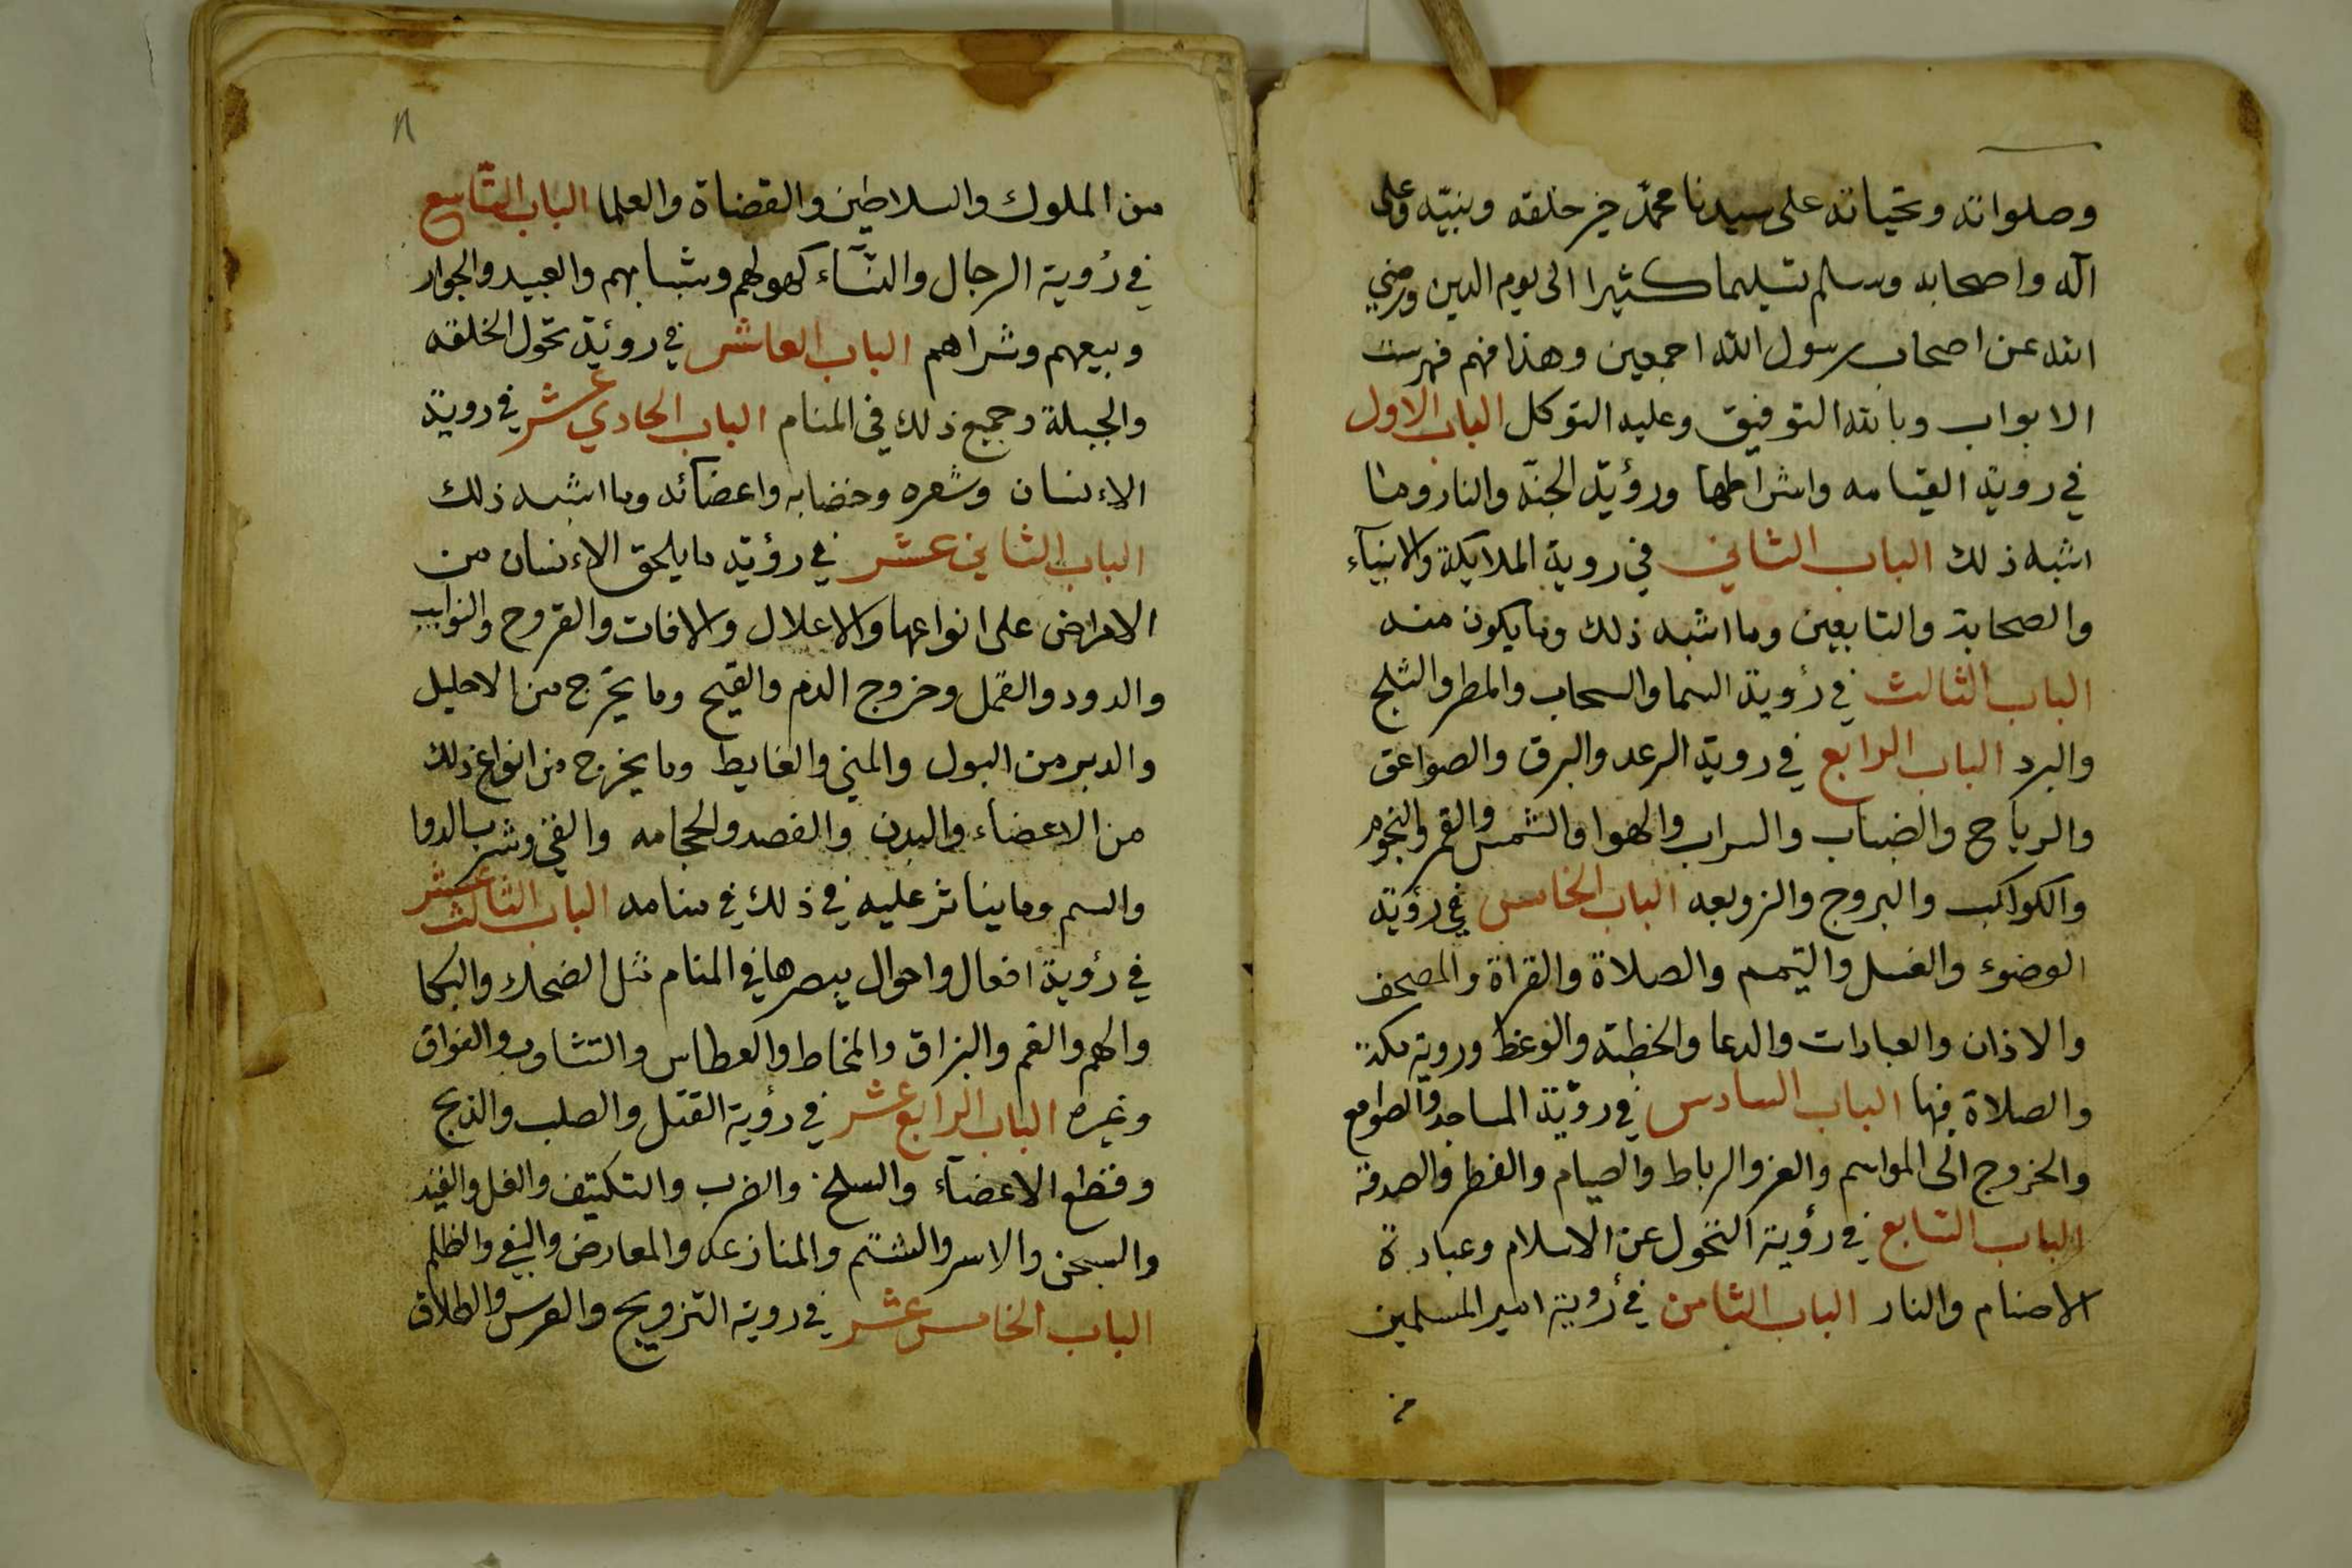 وصلواته وتحياته على سيدنا محمد خير خلقه ونبيّه وعلى
اله واصحابه وسلم تسليما كثيرا الى يوم الدين ورضي
الله عن اصحاب رسول الله اجمعين وهذا فهم فهرست
الابواب وبالله التوفيق وعليه التوكل الباب الاول
في روية القيامه واشراطها ورؤية الجنّة والنار وما
اشبه ذلك الباب الثاني في روية الملايكة والانبيآء
والصحابة والتابعين وما اشبه ذلك وما يكون منه
الباب الثالث في رؤية السما والسحاب والمطر والثلج
والبرد الباب الرابع في روية الرعد والبرق والصواعق
والرياح والضباب والسراب والهوا والشمس والقمر والنجوم
والكواكب والبروج والزوبعه الباب الخامس في رؤية
الوضوء والغسل والتيمم والصلاة والقراة والمصحف
والاذان والعبادات والدعا والخطبة والوعظ وروية مكة
والصلاة فيها الباب السادس في رؤية المساجد والصوامع
والخروج الى المواسم والغزو الرباط والصيام والفطر والصدقة
الباب السابع في رؤية التحول عن الاسلام وعبادة
الاصنام والنار الباب الثامن في رؤية امير المسلمين
من
من الملوك والسلاطين والقضاة والعلما الباب التاسع
في رؤية الرجال والنسآء كهولهم وشبابهم والعبيد والجوار
وبيعهم وشراهم الباب العاشر في روئية تحول الخلقه
والجبلة وجميع ذلك في المنام الباب الحادي عشر في روية
الاءنسان وشعره وخضابه واعضائه وما اشبه ذلك
الباب الثاني عشر في رؤية ما يلحق الاءنسان من
الامراض على انواعها والاعلال والافات والقروح والنوايب
والدود والقمل وخروج الدم والقيح وما يخرج من الاحليل
والدبر من البول والمني والغايط وما يخرج من انواع ذلك
من الاعضاء والبدن والفصد والحجامه والقي وشرب الدوا
والسم وما يناثر عليه في ذلك في منامه الباب الثالث عشر
في رؤية افعال واحوال يبصرها في المنام مثل الضحك والبكا
والهم والغم والبزاق والمخاط والعطاس والتثاوب والفواق
وغيره الباب الرابع عشر في رؤية القتل والصلب والذبح
وقطع الاعضآء والسلخ والضرب والتكتيف والغل والقيد
والسجن والاسر والشتم والمنازعه والمعارض والبغي والظلم
الباب الخامس عشر في روية التزويج والعرس والطلاق